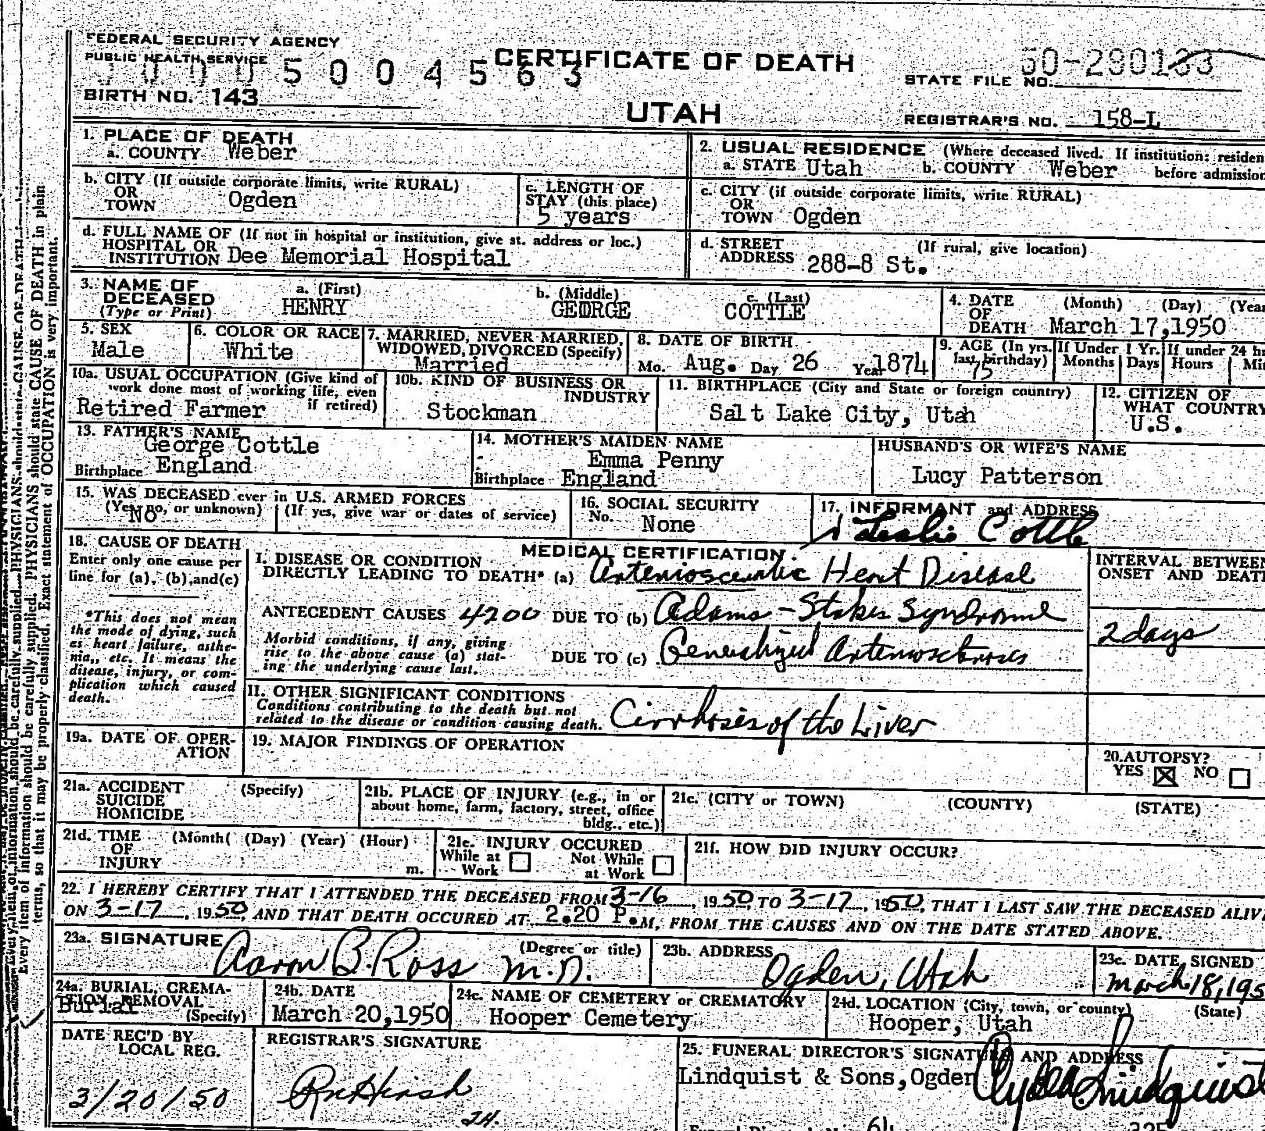 FEDERAL SECURITY AGENCY
PUBLIC HEALTH SERVICE
5004563
CERTIFICATE OF DEATH
UTAH
BIRTH NO. 143
STATE FILE NO. 50-290133
REGISTRAR'S NO. 158-L
1. PLACE OF DEATH
a. COUNTY Weber
2. USUAL RESIDENCE (Where deceased lived. If institution: residen
before admission
a. STATE Utah b. COUNTY Weber
b. CITY (If outside corporate limits, write RURAL)
OR
TOWN Ogden
c. LENGTH OF
STAY (this place)
5 years
c. CITY (if outside corporate limits, write RURAL)
OR
TOWN Ogden
d. FULL NAME OF (If not in hospital or institution, give st. address or loc.)
HOSPITAL OR
INSTITUTION Dee Memorial Hospital
d. STREET (If rural, give location)
ADDRESS 288-8 St.
3. NAME OF
DECEASED
(Type or Print)
a. (First) b. (Middle) c. (Last)
HENRY GEORGE COTTLE
4. DATE (Month) (Day) (Yea
OF
DEATH March 17,1950
5. SEX
Male
6. COLOR OR RACE
White
7. MARRIED, NEVER MARRIED,
WIDOWED, DIVORCED (Specify)
Married
8. DATE OF BIRTH
Mo. Aug. Day 26 Year 1874
9. AGE (In yrs.
last birthday)
75
If Under 1 Yr.
Months Days
If under 24 h
Hours Mi
10a. USUAL OCCUPATION (Give kind of
work done most of working life, even
if retired)
Retired Farmer
10b. KIND OF BUSINESS OR
INDUSTRY
Stockman
11. BIRTHPLACE (City and State or foreign country)
Salt Lake City, Utah
12. CITIZEN OF
WHAT COUNTRY
U.S.
13. FATHER'S NAME
George Cottle
Birthplace England
14. MOTHER'S MAIDEN NAME
Emma Penny
Birthplace England
HUSBAND'S OR WIFE'S NAME
Lucy Patterson
15. WAS DECEASED ever in U.S. ARMED FORCES
(Yes, no, or unknown) (If yes, give war or dates of service)
No
16. SOCIAL SECURITY
No. None
17. INFORMANT and ADDRESS
Leslie Cottle
18. CAUSE OF DEATH
Enter only one cause per
line for (a), (b), and (c)
*This does not mean
the mode of dying, such
as heart failure, asthe-
nia, etc. It means the
disease, injury, or com-
plication which caused
death.
MEDICAL CERTIFICATION
I. DISEASE OR CONDITION
DIRECTLY LEADING TO DEATH* (a) Arteriosclerotic Heart Disease
ANTECEDENT CAUSES 4200 DUE TO (b) Adams-Stokes Syndrome
Morbid conditions, if any, giving
rise to the above cause (a) stat-
ing the underlying cause last.
DUE TO (c) Generalized Arteriosclerosis
INTERVAL BETWEEN
ONSET AND DEAT
2 days
11. OTHER SIGNIFICANT CONDITIONS
Conditions contributing to the death but not
related to the disease or condition causing death. Cirrhosis of the Liver
19a. DATE OF OPER-
ATION
19. MAJOR FINDINGS OF OPERATION
20. AUTOPSY?
YES ☒ NO ☐
21a. ACCIDENT (Specify)
SUICIDE
HOMICIDE
21b. PLACE OF INJURY (e.g., in or
about home, farm, factory, street, office
bldg., etc.)
21c. (CITY or TOWN) (COUNTY) (STATE)
21d. TIME (Month) (Day) (Year) (Hour)
OF
INJURY m.
21e. INJURY OCCURED
While at Work ☐ Not While at Work ☐
21f. HOW DID INJURY OCCUR?
22. I HEREBY CERTIFY THAT I ATTENDED THE DECEASED FROM 3-16, 1950 TO 3-17, 1950, THAT I LAST SAW THE DECEASED ALIV
ON 3-17, 1950 AND THAT DEATH OCCURED AT 2.20 P.M, FROM THE CAUSES AND ON THE DATE STATED ABOVE.
23a. SIGNATURE (Degree or title)
Aaron B. Ross M.D.
23b. ADDRESS
Ogden, Utah
23c. DATE SIGNED
March 18, 195
24a. BURIAL, CREMA-
TION, REMOVAL
(Specify)
Burial
24b. DATE
March 20,1950
24c. NAME OF CEMETERY or CREMATORY
Hooper Cemetery
24d. LOCATION (City, town, or county) (State)
Hooper, Utah
DATE REC'D BY
LOCAL REG.
3/20/50
REGISTRAR'S SIGNATURE
25. FUNERAL DIRECTOR'S SIGNATURE AND ADDRESS
Lindquist & Sons, Ogden Clyde Lindquist
64 325
PHYSICIANS should state CAUSE OF DEATH in plain
Every item of information should be carefully supplied.
terms, so that it may be properly classified. Exact statement of OCCUPATION is very important.